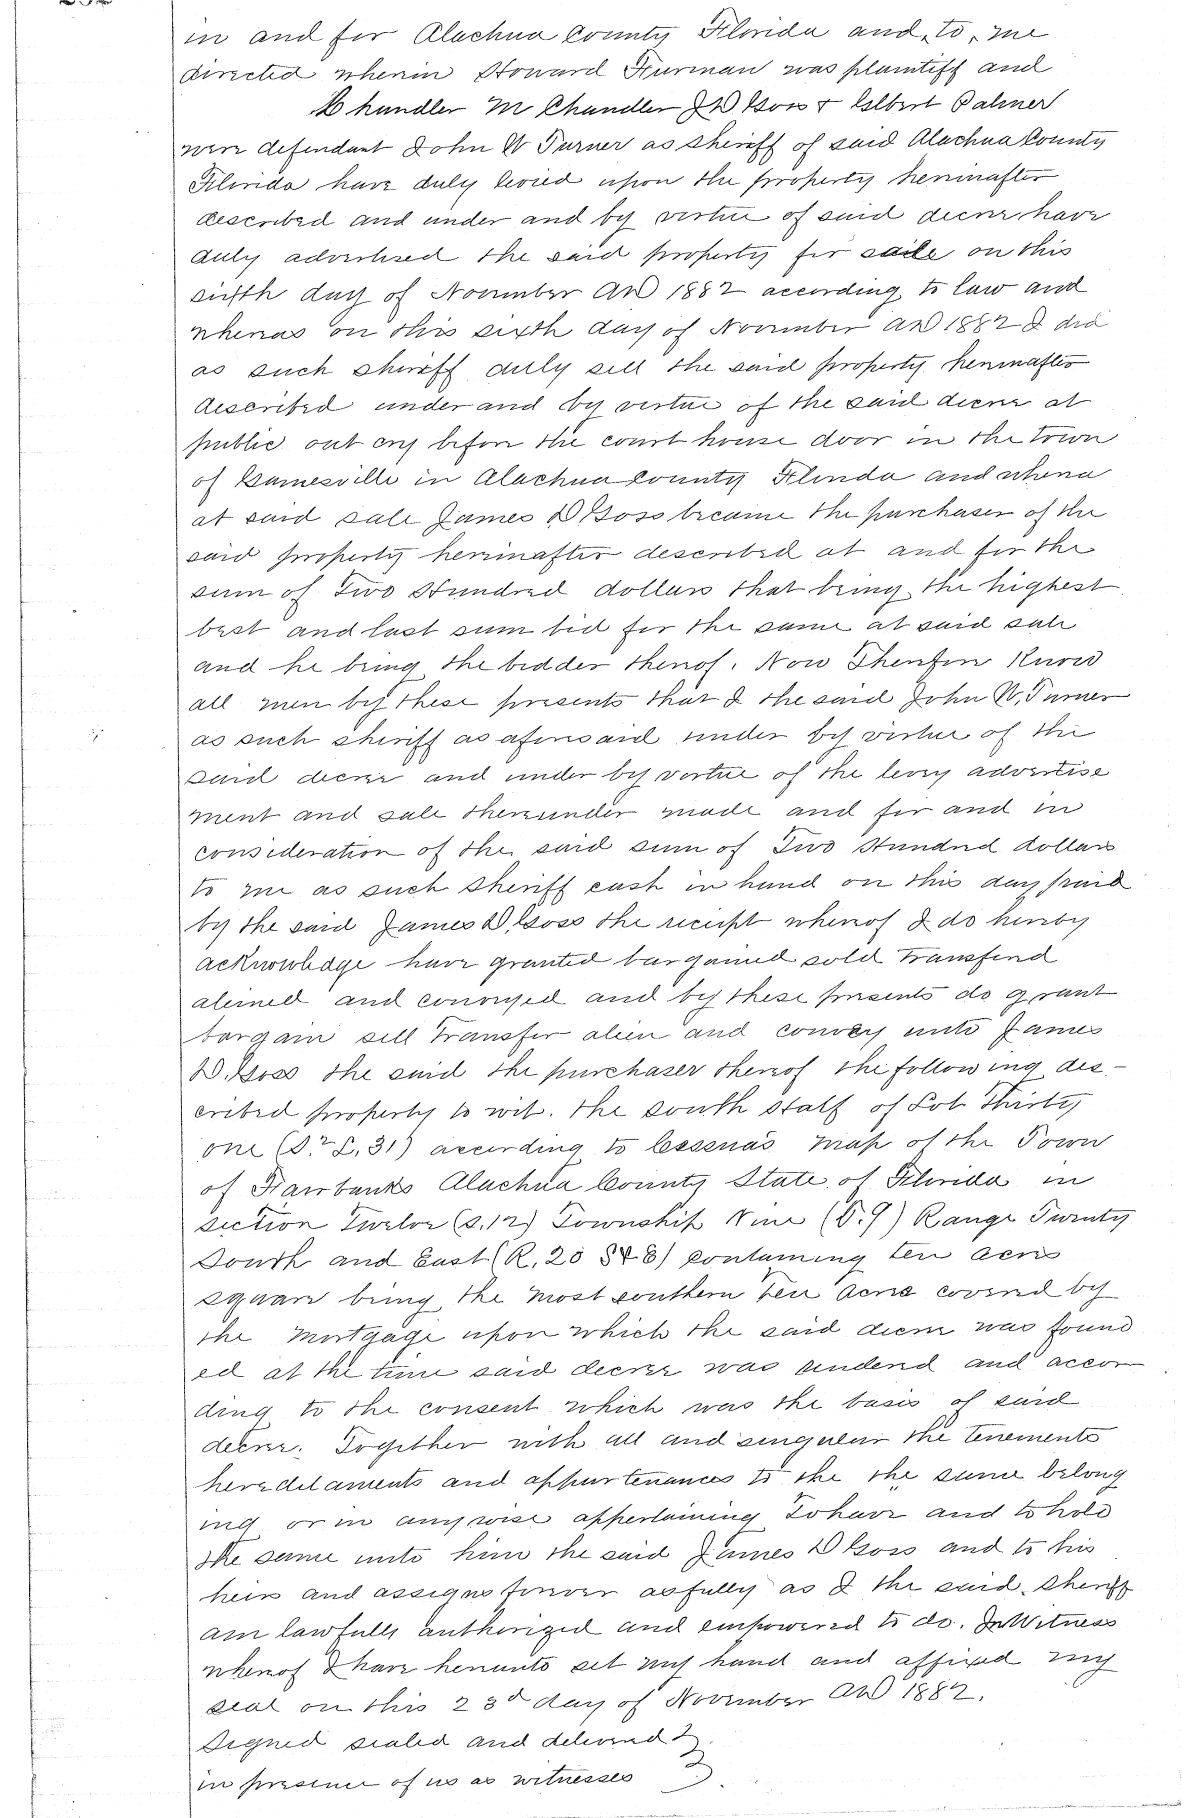 in and for Alachua County Florida and, to, me
directed wherein Howard Furman was plaintiff and
Chandler M Chandler J D Goss & Gilbert Palmer
were defendant John W Turner as sheriff of said Alachua County
Florida have duly levied upon the property hereinafter
described and under and by virtue of said decree have
duly advertised the said property for sale on this
sixth day of November AD 1882 according to law and
whereas on this sixth day of November AD 1882 I did
as such sheriff duly sell the said property hereinafter
described under and by virtue of the said decree at
public out cry before the court house door in the town
of Gainesville in Alachua County Florida and whereas
at said sale James D Goss became the purchaser of the
said property hereinafter described at and for the
sum of Two Hundred dollars that being the highest
best and last sum bid for the same at said sale
and he being the bidder thereof. Now Therefore Know
all men by these presents that I the said John W. Turner
as such sheriff as aforesaid under by virtue of the
said decree and under by vertue of the levy advertise
ment and sale thereunder made and for and in
consideration of the said sum of Two Hundred dollars
to me as such Sheriff cash in hand on this day paid
by the said James D. Goss the receipt whereof I do hereby
acknowledge have granted bargained sold Transfered
aliened and conveyed and by these presents do grant
bargain sell Transfer alien and convey unto James
D. Goss the said the purchaser thereof the following des-
cribed property to wit. The south Half of Lot Thirty
one (L. 31) according to Cessna's map of the Town
of Fairbanks Alachua County State of Florida in
section Twelve (S. 12) Township Nine (T. 9) Range Twenty
South and East (R. 20 S & E) containing ten acres
square being the most southern ten acres covered by
the mortgage upon which the said decree was found
ed at the time said decree was rendered and accor
ding to the consent which was the basis of said
decree. Together with all and singular the tenements
heredelaments and appurtenances to the the same belong
ing or in anywise appertaining To have and to hold
the same unto him the said James D Goss and to his
heirs and assigns forever as fully as I the said. Sheriff
am lawfully authorized and empowered to do. In Witness
whereof I have hereunto set my hand and affixed my
seal on this 23d day of November AD 1882.
Signed sealed and delivered }
in presence of us as witnesses }